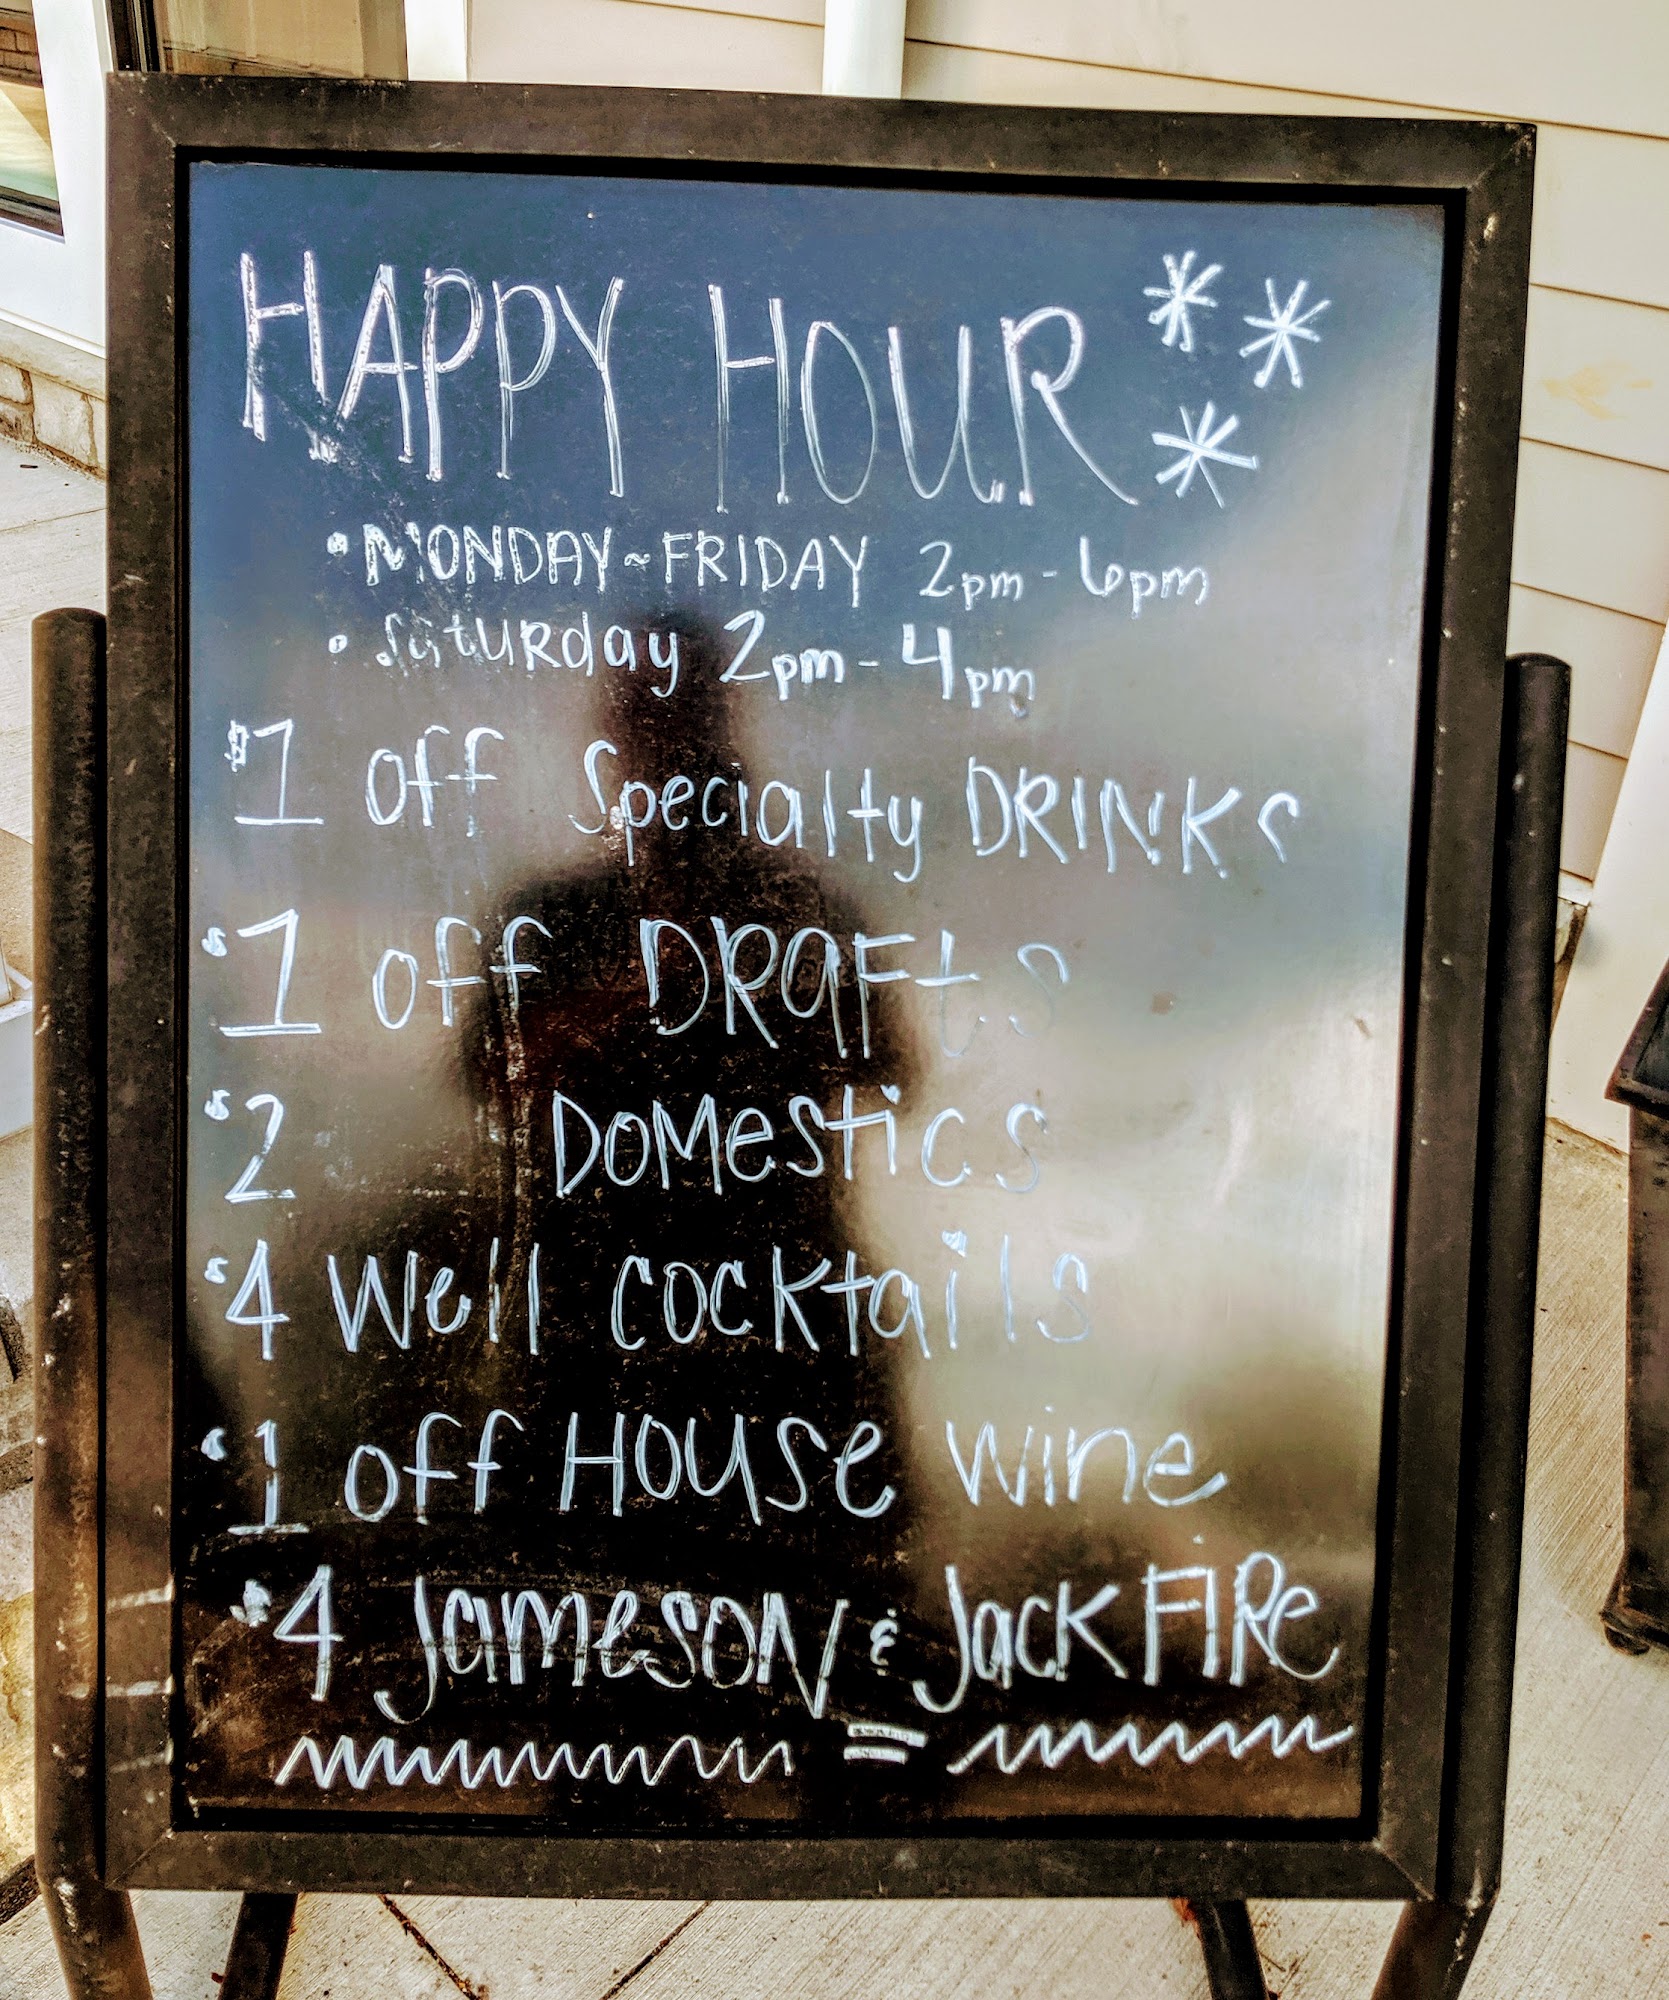 HAPPY HOUR
• MONDAY ~ FRIDAY 2pm - 6pm
• Saturday 2pm - 4pm
$1 off Specialty DRINKS
$1 off DRAFTS
$2 DOMESTICS
$4 Well cocktails
$1 off HOUSE wine
$4 Jameson & Jack FIRE